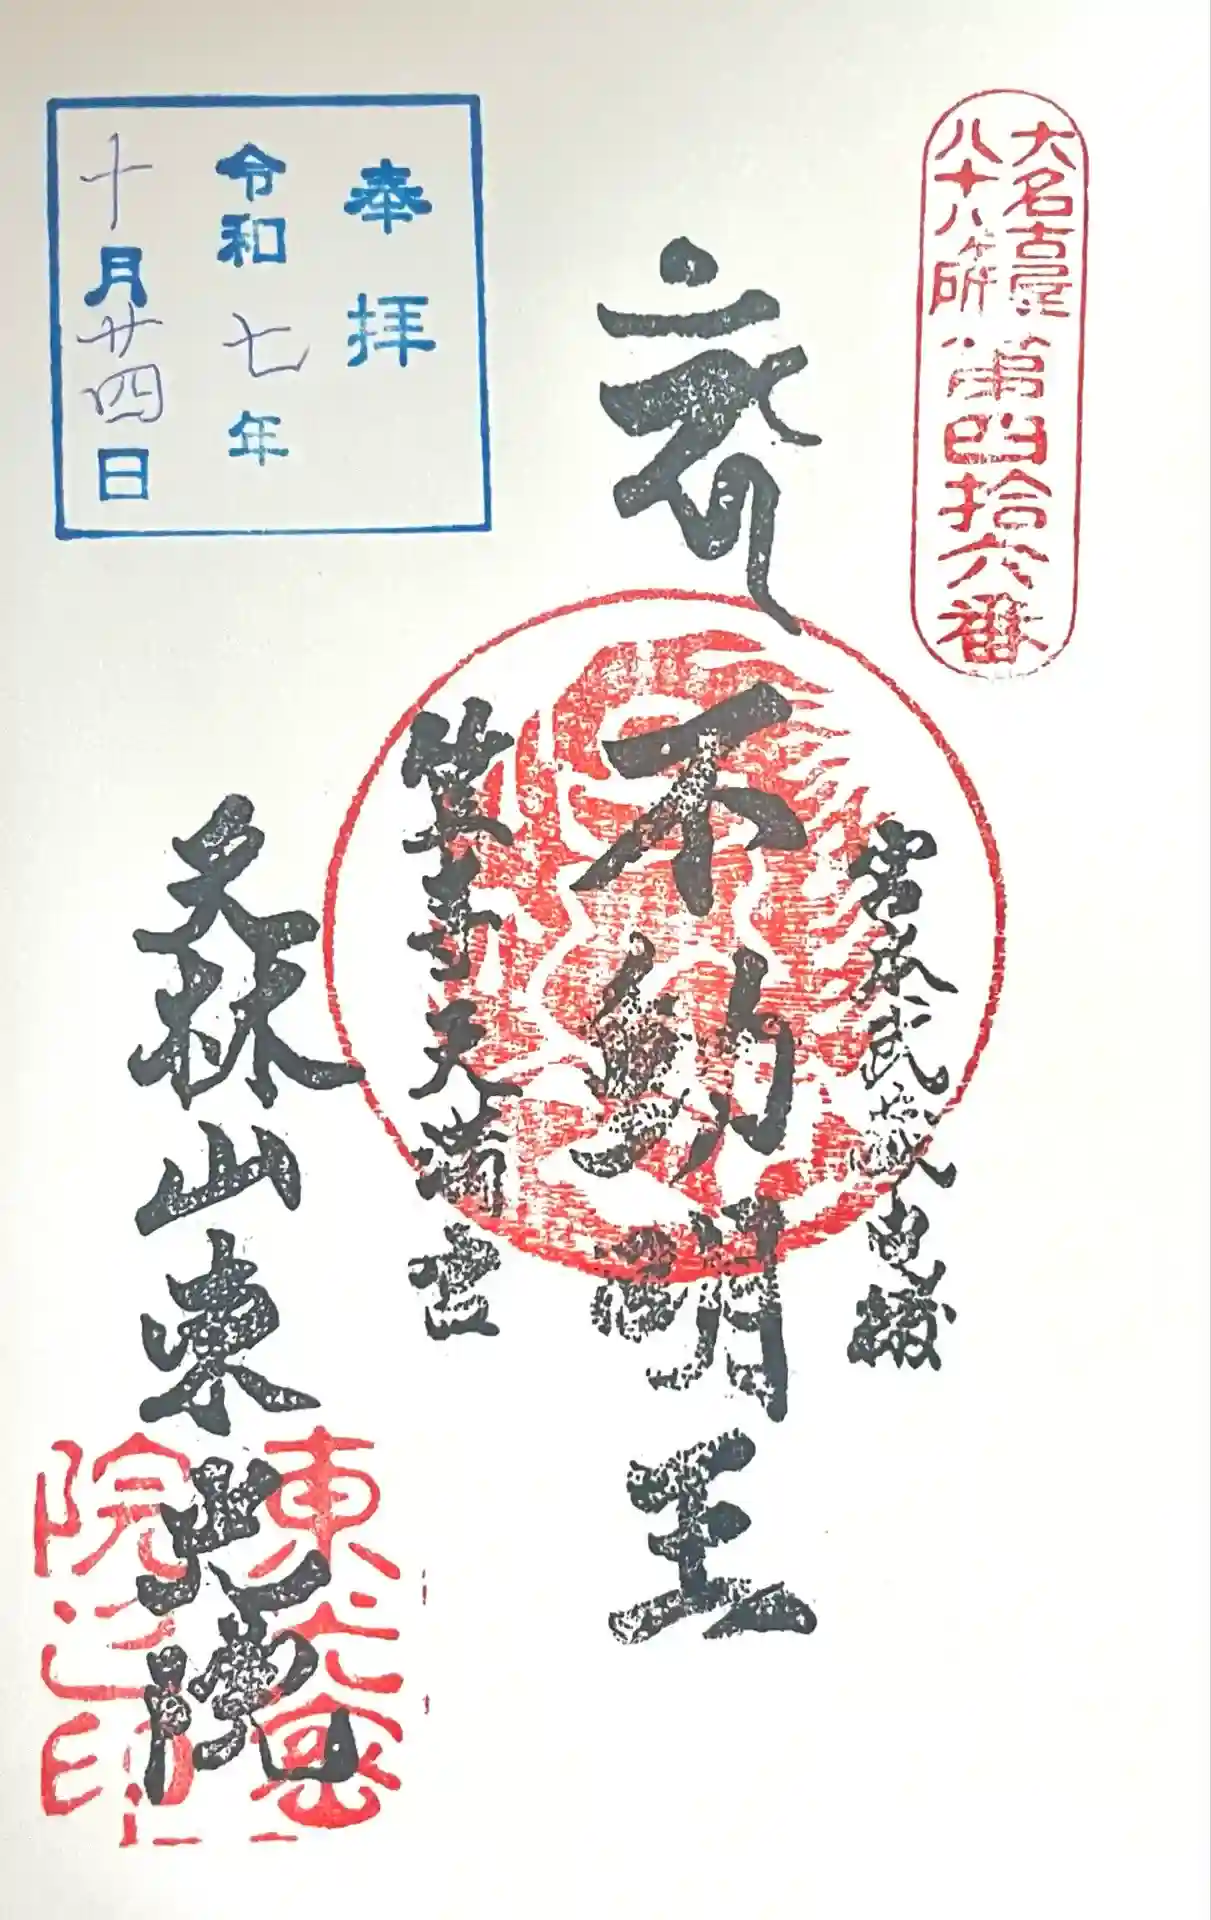 大名古屋
八十八ヶ所
第四拾六番
不動明王
笠寺天満宮
奉拝
令和七年
十月廿四日
天林山東光院
東光密
院之印